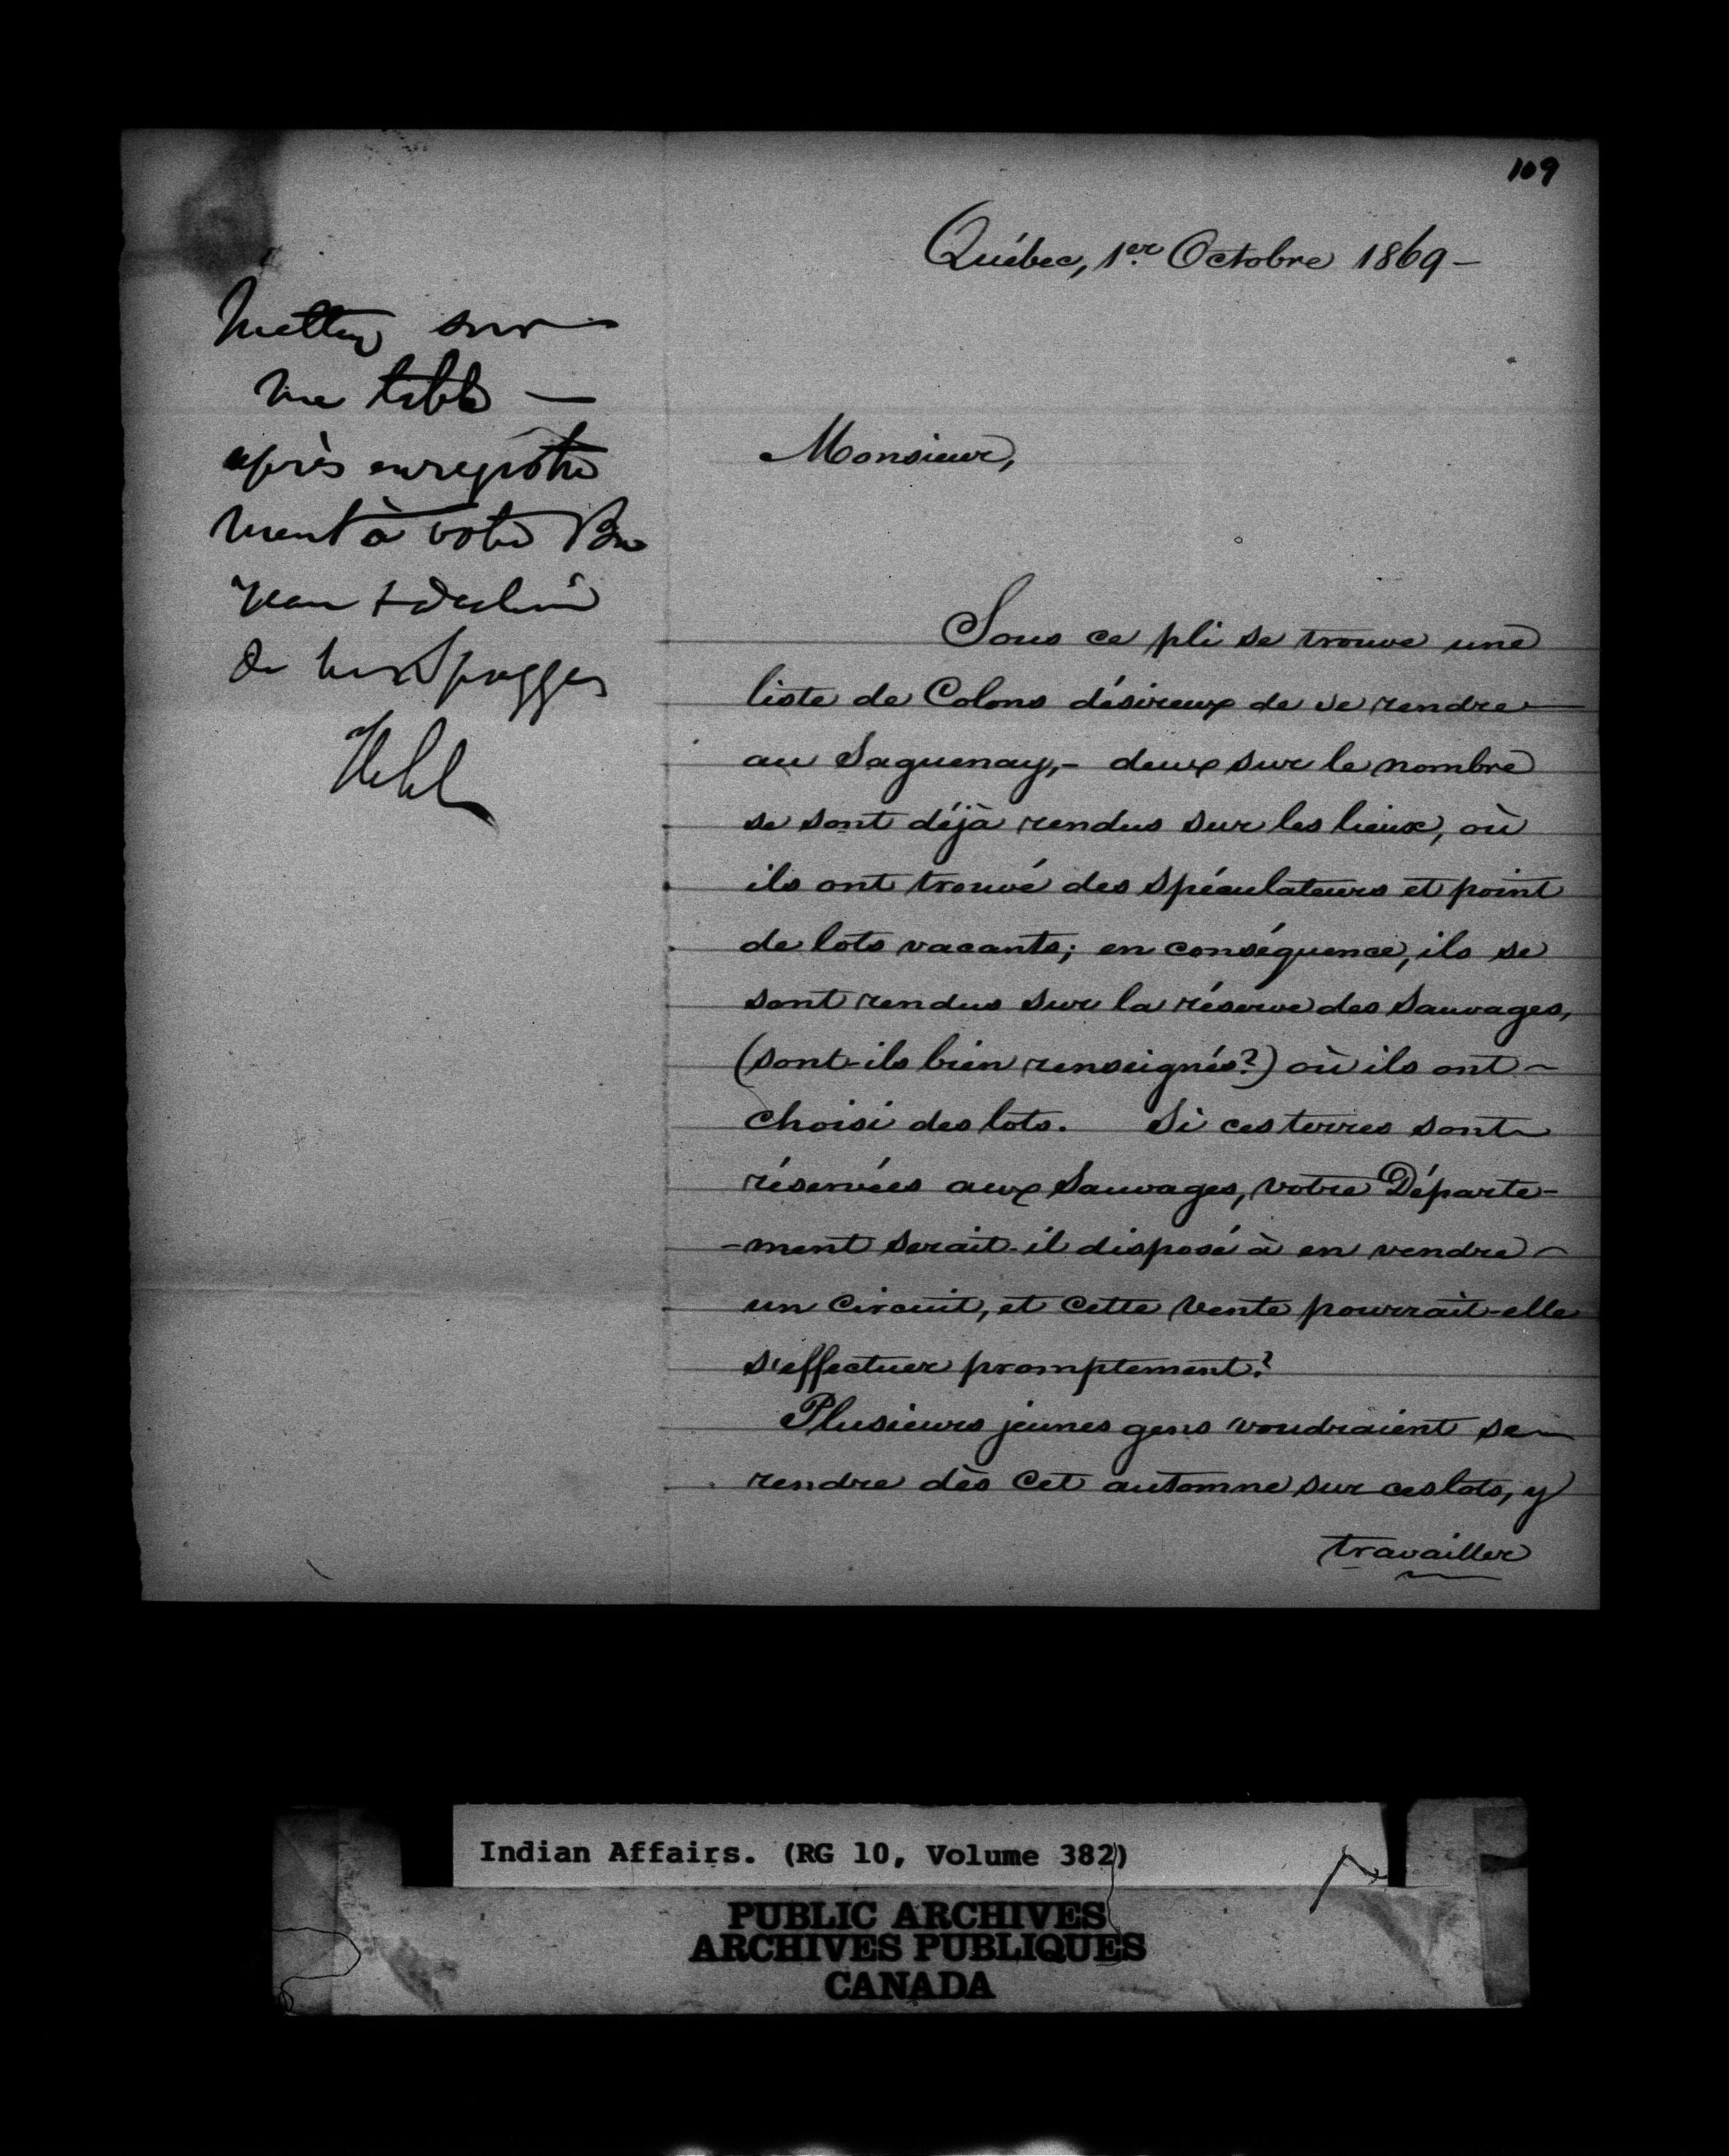 109
Québec, 1er Octobre 1869 -
Mettez sur
ma table —
après enregistre
ment à votre Bu
reau &
de Spragge
Monsieur,
Sous ce pli se trouve une
liste de Colons désireux de se rendre
au Saguenay, - deux sur le nombre
se sont déjà rendus sur les lieux, où
ils ont trouvé des Spéculateurs et point
de lots vacants; en conséquence, ils se
sont rendus sur la réserve des Sauvages,
(sont-ils bien renseignés?) où ils ont -
choisi des lots. Si ces terres sont
réservées aux Sauvages, votre Départe-
-ment serait-il disposé à en vendre
un Circuit, et cette vente pourrait-elle
s'effectuer promptement?
Plusieurs jeunes gens voudraient se
rendre dès cet automne sur ces lots, y
travailler
Indian Affairs. (RG 10, Volume 382)
PUBLIC ARCHIVES
ARCHIVES PUBLIQUES
CANADA